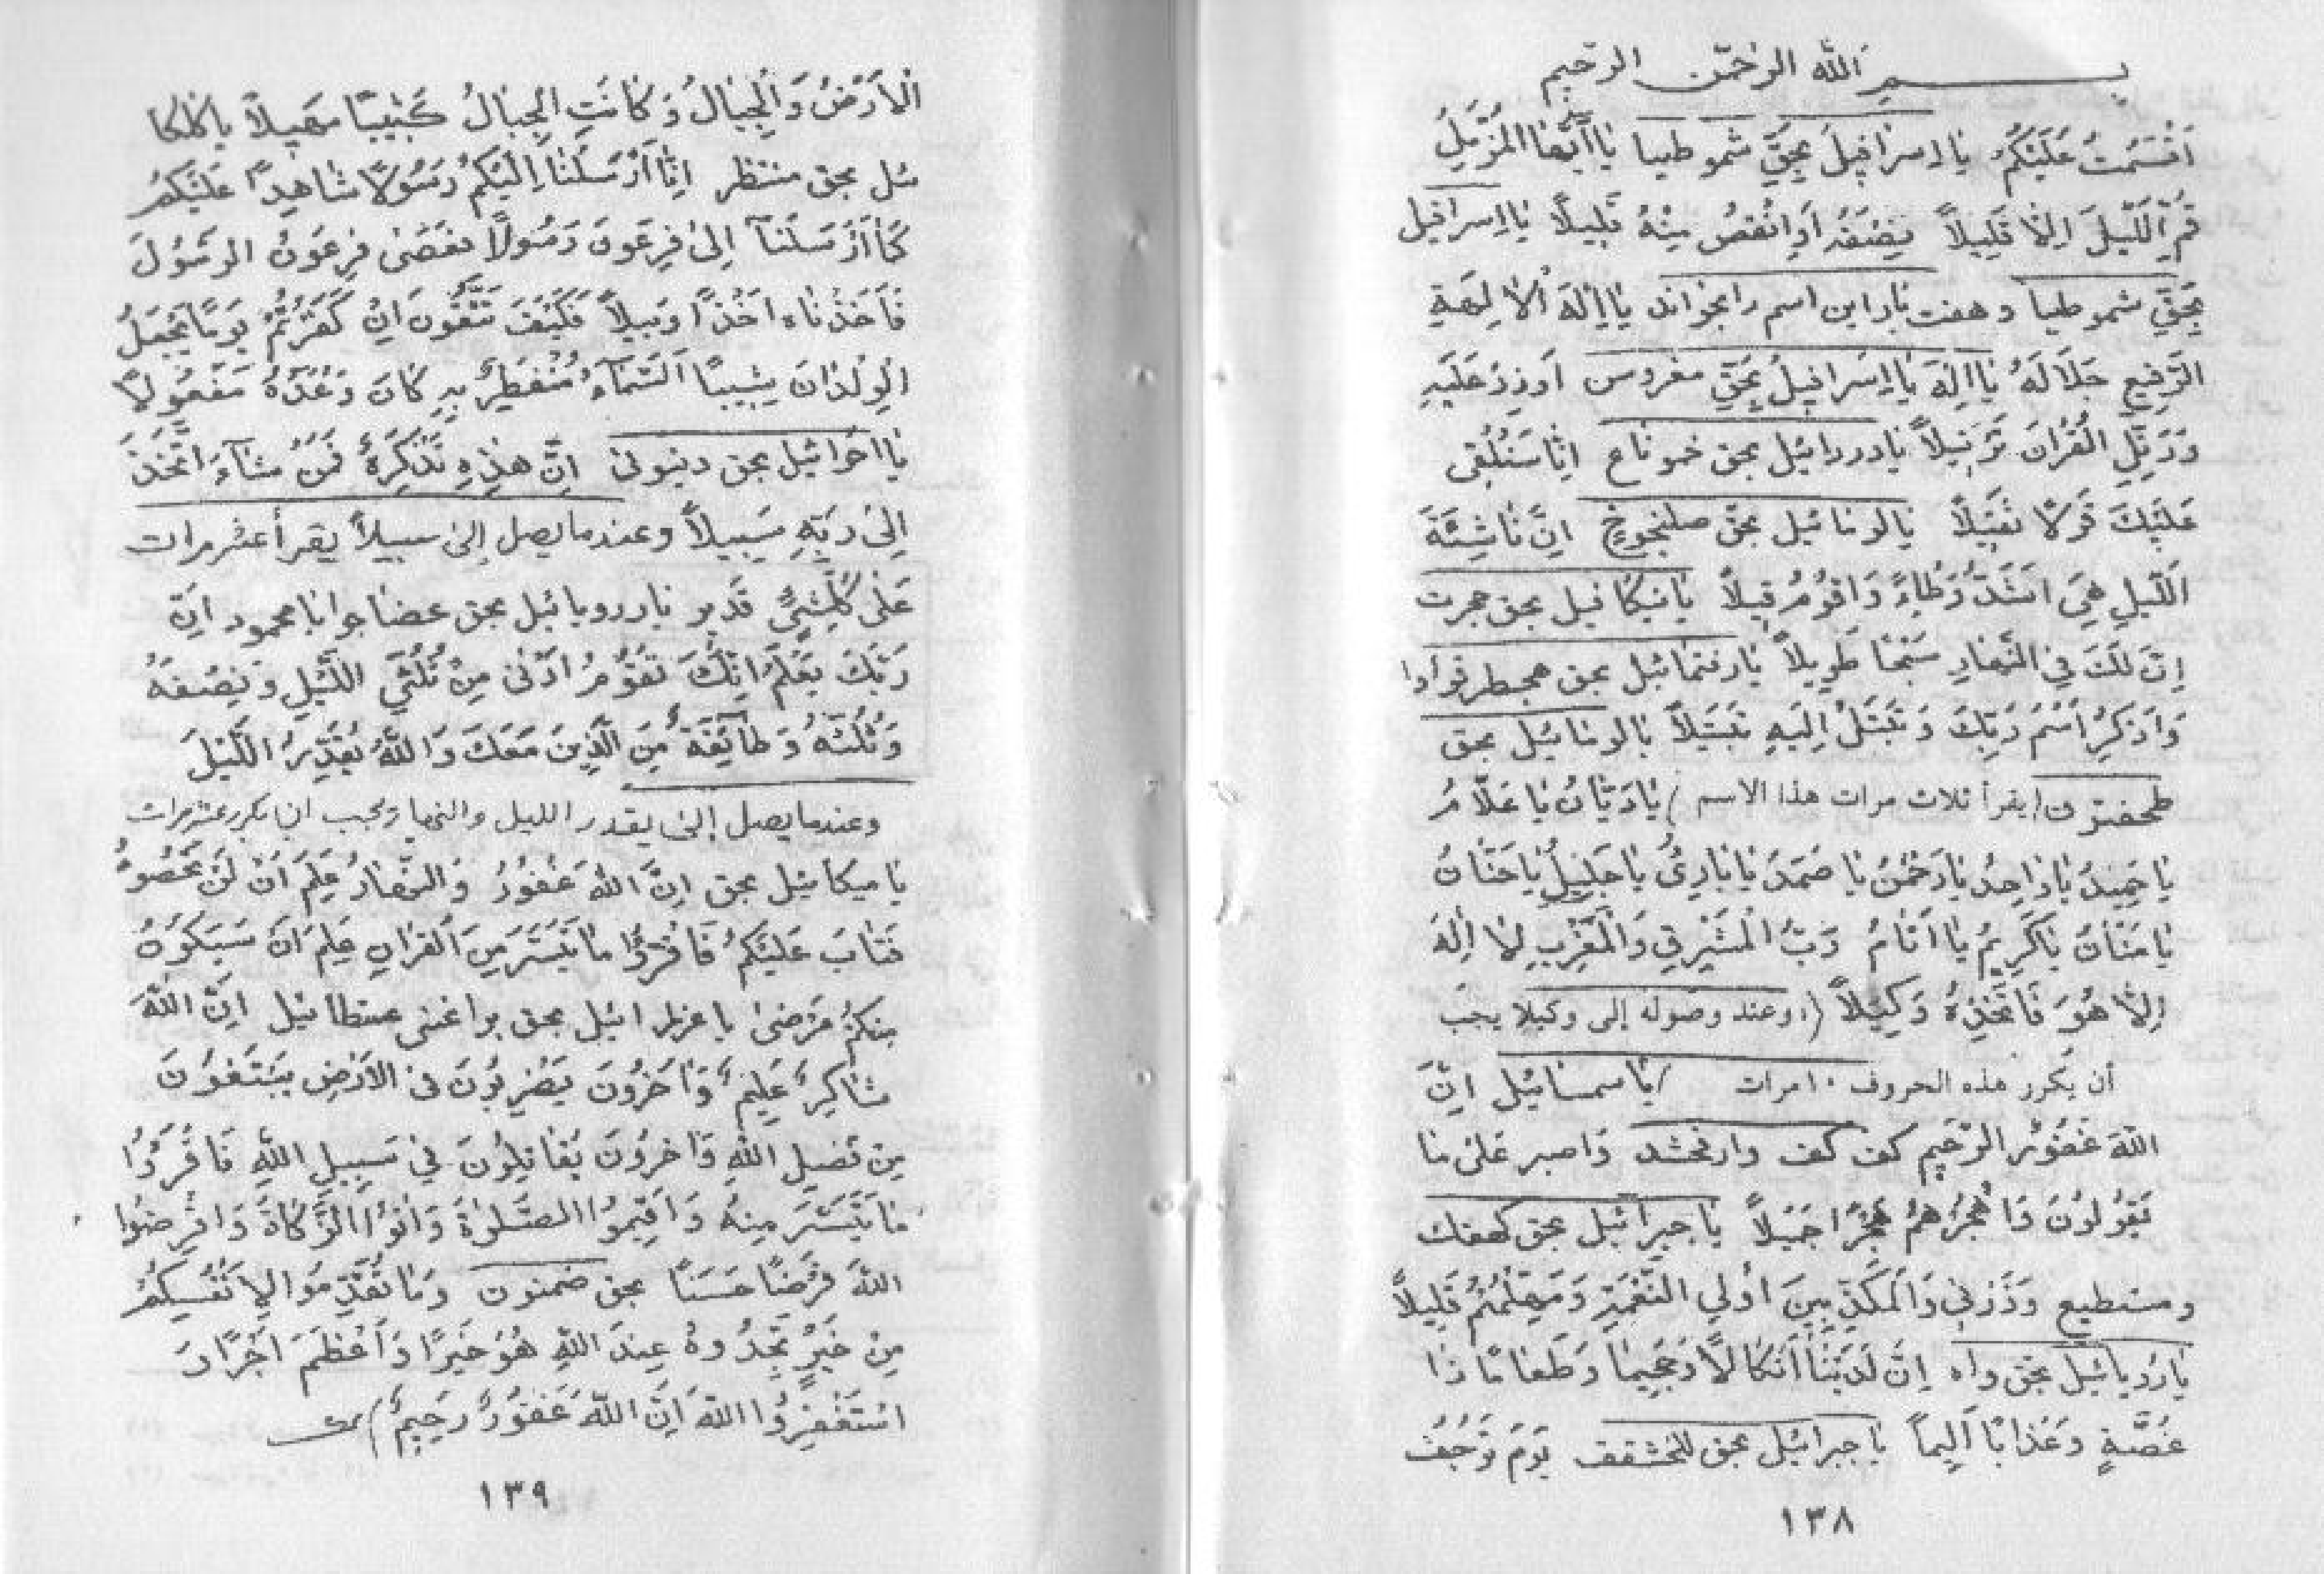 بسم الله الرحمن الرحيم
اَقْسَمْتُ عَلَيْكُمْ يٰا اِسرٰافيلَ بِحَقِّ شموطيبا يٰا اَيُّهَا الْمُزَّمِّلُ
قُمِ الَّليْلَ اِلّٰا قَليٖلاً نِصْفَهُ اَوِ انْقُصْ مِنْهُ قَليٖلًا يٰا اِسرٰافيل
بِحَقِّ شموطيا و هفت بار اين اسم را بخواند يٰا اِلٰهَ الْاٰلِهَةِ
الرَّفيٖعِ جَلٰالَهُ يٰا اِلٰهَ يٰا اِسْرٰافيٖلُ بِحَقِّ مغروس اَوْزِدْ عَلَيْهِ
وَرَتِّلِ الْقُرْاٰنَ تَرْتيٖلاً يٰا دردائيل بحق خموناع اِنّٰا سَنُلْقى
عَلَيْكَ قَوْلًا ثَقيٖلاً يٰا لومائيل بحقّ صلنجوخ اِنَّ نٰاشِئَةَ
الَّليْلِ هِيَ اَشَدُّ وَطْاءً وَاَقْوُمُ قيٖلاً يٰا نيكافيل بحق هجرت
اِنَّ لَكَ فِي النَّهٰارِ سَبْحًا طَويٖلاً يٰا رفتمائيل بحق هجطرفوادا
وَاذْكُرِ اسْمَ رَبِّكَ وَ تَبَتَّلْ اِلَيْهِ تَبْتيٖلاً يا لومائيل بحق
طحفتون (يقرأ ثلاث مرات هذا الاسم) يٰا دَيّٰانُ يٰا عَلّٰامُ
يٰا حَميٖدُ يٰا وٰاحِدُ يٰا رَحْمٰنُ يٰا صَمَدُ يٰا بٰارِئُ يٰا جَليٖلُ يٰا حَنّٰانُ
يٰا مَنّٰانُ يٰا كَريٖمُ يٰا اَنٰامُ رَبُّ الْمَشْرِقِ وَالْمَغْرِبِ لاٰ اِلٰهَ
اِلّٰا هُوَ فَاتَّخِذْهُ وَكيٖلاً (وعند وصوله إلى وكيلا يجب
أن يكرر هذه الحروف ١٠ مرات) يٰا سمسائيل اِنَّ
اللهَ غَفُوْرُ الرَّحيٖم كف كف وارفحشد وَاصبر عَلىٰ مٰا
يَقُوْلُوْنَ وَاهْجُرْهُمْ هَجْرًا جَميٖلاً يٰا جبرائيل بحق كهفك
و مستطيع وَذَرْنىٖ وَالْمُكَذِّبيٖنَ اُولِي النَّعْمَةِ وَمَهِّلْهُمْ قَليٖلاً
يٰا رُديائيل بحق واه اِنَّ لَدَيْنٰا اَنْكٰالًا وَجَحيٖمًا وَطَعٰامًا ذٰا
غُصَّةٍ وَعَذٰابًا اَليٖمًا يٰا جبرائيل بحق للخشقف يَوْمَ تَرْجُفُ
١٣٨
الْاَرْضُ وَالْجِبٰالُ وَكٰانَتِ الْجِبٰالُ كَثيٖبًا مَهيٖلاً يا كلكا
ئيل بحق منتظر اِنّٰا اَرْسَلْنٰا اِلَيْكُمْ رَسُوْلًا شٰاهِدًا عَلَيْكُمْ
كَمٰا اَرْسَلْنٰا اِلىٰ فِرْعَوْنَ رَسُوْلاً فَعَصٰى فِرْعَوْنُ الرَّسُوْلَ
فَاَخَذْنٰاهُ اَخْذًا وَبيٖلاً فَكَيْفَ تَتَّقُوْنَ اِنْ كَفَرْتُمْ يَوْمًا يَجْعَلُ
الْوِلْدٰانَ شيٖبًا اَلسَّمٰآءُ مُنْفَطِرٌ بِهِ كٰانَ وَعْدُهُ مَفْعُوْلًا
يٰا احرائيل بحق دينونى اِنَّ هٰذِهِ تَذْكِرَةٌ فَمَنْ شٰآءَ اتَّخَذَ
اِلىٰ رَبِّهِ سَبيٖلاً وعندما يصل إلىٰ سبيلاً يقرأ عشر مرات
عَلىٰ كُلِّ شَئٍ قَديرٌ يٰا روبائيل بحق عضاجوا يا محمود اِنَّ
رَبَّكَ يَعْلَمُ اِنَّكَ تَقُوْمُ اَدْنٰى مِنْ ثُلُثَيِ الَّليْلِ وَنِصْفَهُ
وَثُلُثَهُ وَطٰآئِفَةٌ مِنَ الَّذيٖنَ مَعَكَ وَاللهُ يُقَدِّرُ الَّليْلَ
وعندما يصل إلىٰ يقدر الليل والنهار يجب ان يكرر عشر مرات
يٰا ميكائيل بحق اِنَّ اللهَ غَفُوْرُ وَالنَّهٰارَ عَلِمَ اَنْ لَنْ تُحْصُوْهُ
فَتٰابَ عَلَيْكُمْ فَاقْرَؤُا مٰا تَيَسَّرَ مِنَ الْقُرْاٰنِ عَلِمَ اَنْ سَيَكُوْنُ
مِنْكُمْ مَرْضىٰ يا عزرائيل بحق براغنى عنطائيل اِنَّ اللهَ
شٰاكِرٌ عَليٖمٌ وَاٰخَرُوْنَ يَضْرِبُوْنَ فى الْاَرْضِ يَبْتَغُوْنَ
مِنْ فَضْلِ اللهِ وَاٰخَرُوْنَ يُقٰاتِلُوْنَ فىٖ سَبيٖلِ اللهِ فَاقْرَؤُا
مٰا تَيَسَّرَ مِنْهُ وَاَقيٖمُوا الصَّلوٰةَ وَاٰتُوا الزَّكٰاةَ وَاقْرِضُوا
اللهَ قَرْضًا حَسَنًا بحق ضمنون وَمٰا تُقَدِّمُوا لِاَنْفُسِكُمْ
مِنْ خَيْرٍ تَجِدُوْهُ عِنْدَ اللهِ هُوَ خَيْرًا وَاَعْظَمَ اَجْرًا وَ
اسْتَغْفِرُوا اللهَ اِنَّ اللهَ غَفُوْرٌ رَحيٖمٌ)
١٣٩